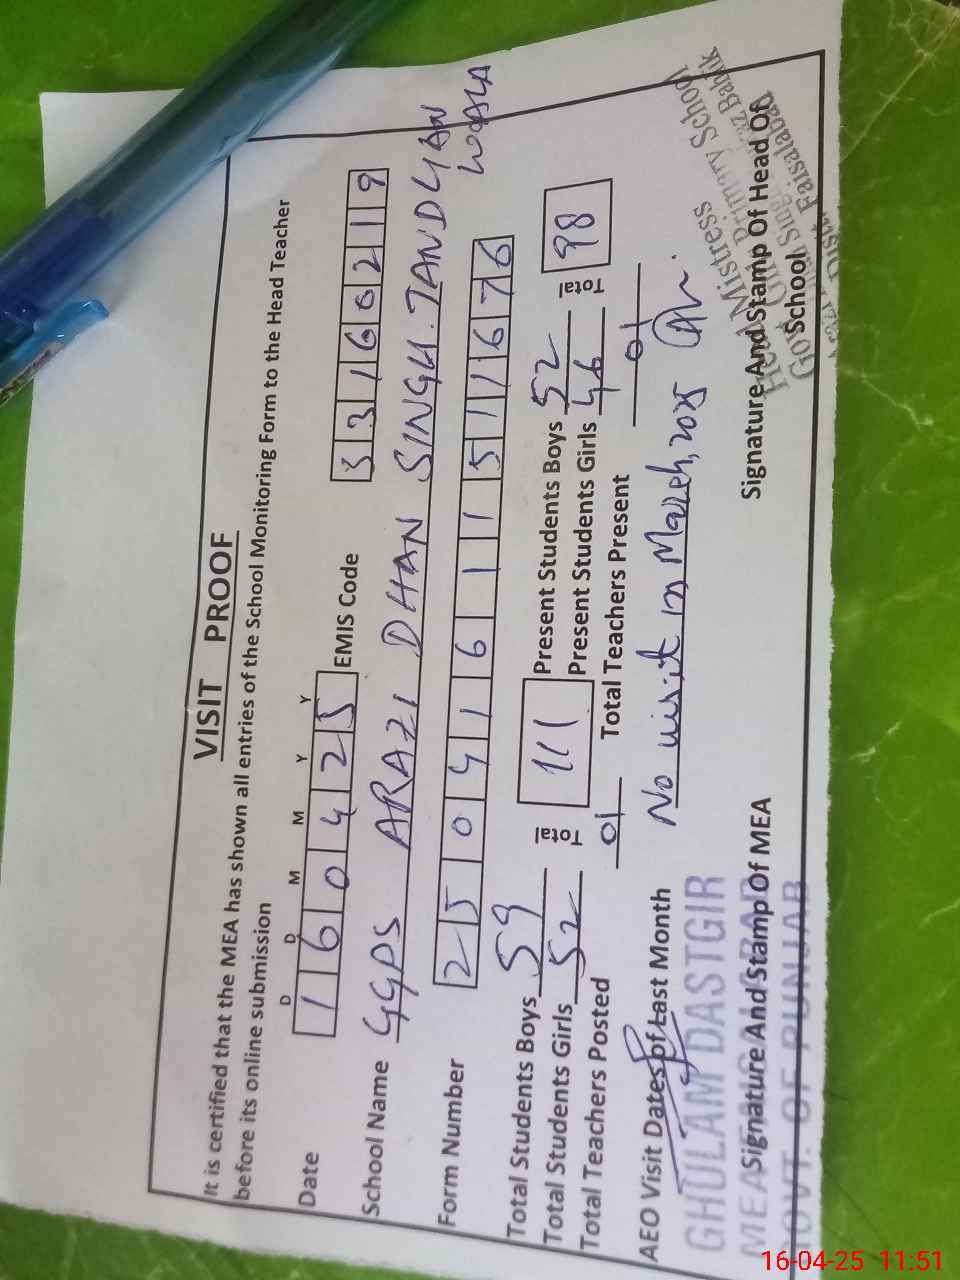 VISIT PROOF
It is certified that the MEA has shown all entries of the School Monitoring Form to the Head Teacher
before its online submission
D D M M Y Y
Date 1 6 0 4 2 5 EMIS Code 3 3 1 6 0 2 1 9
School Name GGPS ARAZI DHAN SINGH. JANDYAN
WALA
Form Number 2 5 0 4 1 6 1 1 5 1 1 6 7 6
Total Students Boys 59 Total 111 Present Students Boys 52 Total 98
Total Students Girls 52 Present Students Girls 46
Total Teachers Posted 01 Total Teachers Present 01
AEO Visit Dates of Last Month No visit in March, 2025
GHULAM DASTGIR
Signature And Stamp Of MEA Signature And Stamp Of Head Of
School
MEA FAISALABAD
GOVT. OF PUNJAB
Head Mistress
Primary School
Distt. Faisalabad
16-04-25 11:51